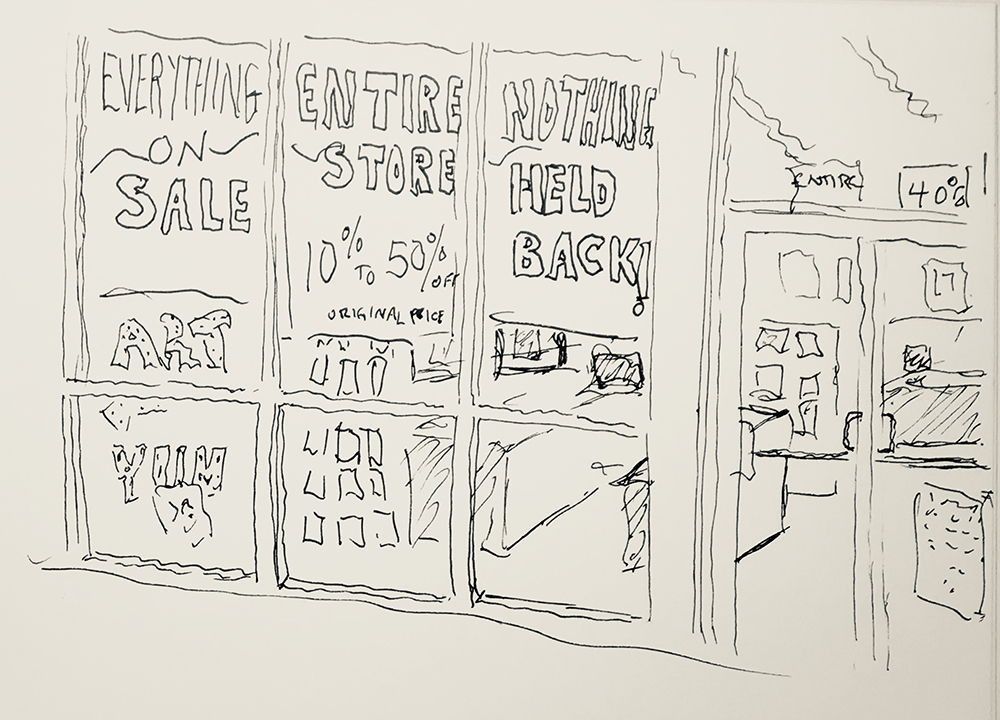 EVERYTHING
ON
SALE
ART
YUM
ENTIRE
STORE
10% TO 50% OFF
ORIGINAL PRICE
NOTHING
HELD
BACK!
ENTIRE
40%